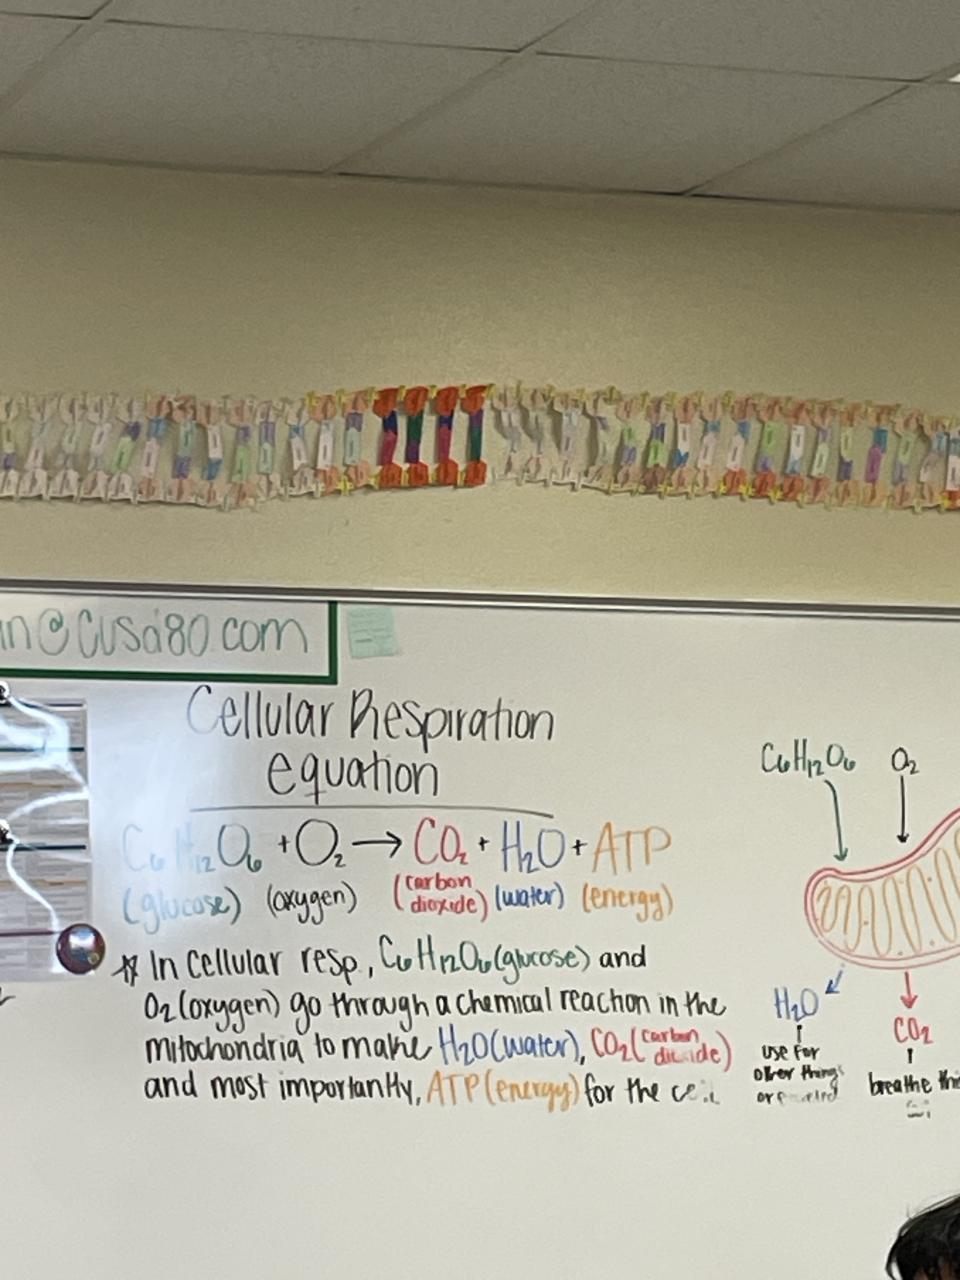 in@cusd80.com
Cellular Respiration
equation
C₆H₁₂O₆ + O₂ → CO₂ + H₂O + ATP
(glucose) (oxygen) (carbon dioxide) (water) (energy)
☆ In cellular resp., C₆H₁₂O₆ (glucose) and
O₂ (oxygen) go through a chemical reaction in the
mitochondria to make H₂O (water), CO₂ (carbon dioxide)
and most importantly, ATP (energy) for the
C₆H₁₂O₆ O₂
H₂O
use for
other things
or
CO₂
breathe